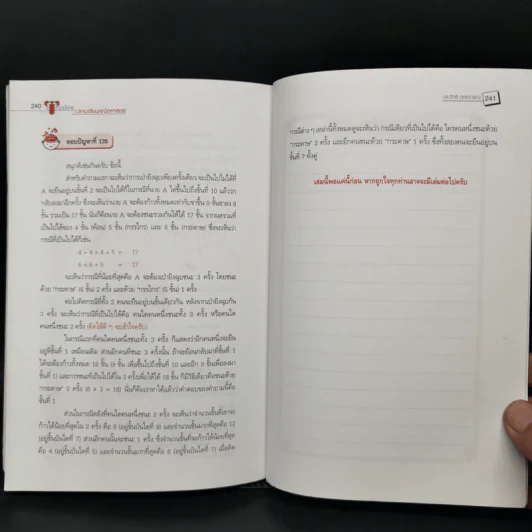 240
ปราบเซียนคณิตศาสตร์
ตอบปัญหาที่ 126
สนุกดีเช่นกันครับ ข้อนี้
สำหรับคำถามแรก จะเห็นว่าการเป่ายิงฉุบเพียงครั้งเดียว จะเป็นไปไม่ได้ที่
A จะยืนอยู่บนชั้นที่ 2 จะเป็นไปได้ก็ในกรณีที่นาย A ไต่ขึ้นไปถึงชั้นที่ 10 แล้ววก
กลับลงมาอีกครั้ง ซึ่งจะเห็นว่านาย A จะต้องก้าวทั้งหมดเท่ากับขาขึ้น 9 ชั้นขาลง 8
ชั้น รวมเป็น 17 ชั้น นั่นก็คือนาย A จะต้องชนะรวมกันให้ได้ 17 ชั้น จากผลรวมที่
เป็นไปได้ของ 4 ชั้น (ค้อน) 5 ชั้น (กรรไกร) และ 6 ชั้น (กระดาษ) ซึ่งจะเห็นว่า
กรณีที่เป็นไปได้ก็เช่น
4 + 4 + 4 + 5 = 17
6 + 6 + 5 = 17
จะเห็นว่ากรณีที่น้อยที่สุดคือ A จะต้องเป่ายิงฉุบชนะ 3 ครั้ง โดยชนะ
ด้วย "กระดาษ" (6 ชั้น) 2 ครั้ง และด้วย "กรรไกร" (5 ชั้น) 1 ครั้ง
ต่อไปคิดกรณีที่ทั้ง 2 คนจะยืนอยู่บนชั้นเดียวกัน หลังจากเป่ายิงฉุบกัน
3 ครั้ง จะเห็นว่ากรณีที่เป็นไปได้คือ คนใดคนหนึ่งชนะทั้ง 3 ครั้ง หรือคนใด
คนหนึ่งชนะ 2 ครั้ง (คิดให้ดี ๆ จะเข้าใจครับ)
ในกรณีแรกที่คนใดคนหนึ่งชนะทั้ง 3 ครั้ง ก็แสดงว่าอีกคนหนึ่งจะยืน
อยู่ที่ชั้นที่ 1 เหมือนเดิม ส่วนอีกคนที่ชนะ 3 ครั้งนั้น ถ้าจะย้อนกลับมาที่ชั้นที่ 1
ได้จะต้องก้าวทั้งหมด 18 ชั้น (9 ชั้น เพื่อขึ้นไปถึงชั้นที่ 10 และอีก 9 ชั้นเพื่อลงมา
ชั้นที่ 1) และการชนะที่เป็นไปได้ใน 3 ครั้งเพื่อให้ได้ 18 ชั้น ก็มีวิธีเดียวคือชนะด้วย
"กระดาษ" 3 ครั้ง (6 x 3 = 18) นั่นก็คือเราหาได้แล้วว่าคำตอบของคำถามนี้คือ
ชั้นที่ 1
ส่วนในกรณีหลังที่คนใดคนหนึ่งชนะ 2 ครั้ง จะเห็นว่าจำนวนขั้นที่เราจะ
ก้าวได้น้อยที่สุดใน 2 ครั้ง คือ 8 (อยู่ขั้นบันไดที่ 9) และจำนวนขั้นมากที่สุดคือ 12
(อยู่ขั้นบันไดที่ 7) ส่วนอีกคนนั้นจะชนะ 1 ครั้ง ซึ่งจำนวนขั้นที่จะก้าวได้น้อยที่สุด
คือ 4 (อยู่ขั้นบันไดที่ 5) และจำนวนขั้นมากที่สุดคือ 6 (อยู่ขั้นบันไดที่ 7) เมื่อคิด
241
กรณีต่าง ๆ เหล่านี้ทั้งหมดดูจะเห็นว่า กรณีเดียวที่เป็นไปได้คือ ใครคนหนึ่งชนะด้วย
"กระดาษ" 2 ครั้ง และอีกคนชนะด้วย "กระดาษ" 1 ครั้ง ซึ่งทั้งสองคนจะยืนอยู่บน
ชั้นที่ 7 ทั้งคู่
เล่มนี้พอแค่นี้ก่อน หากถูกใจทุกท่านอาจจะมีเล่มต่อไปครับ